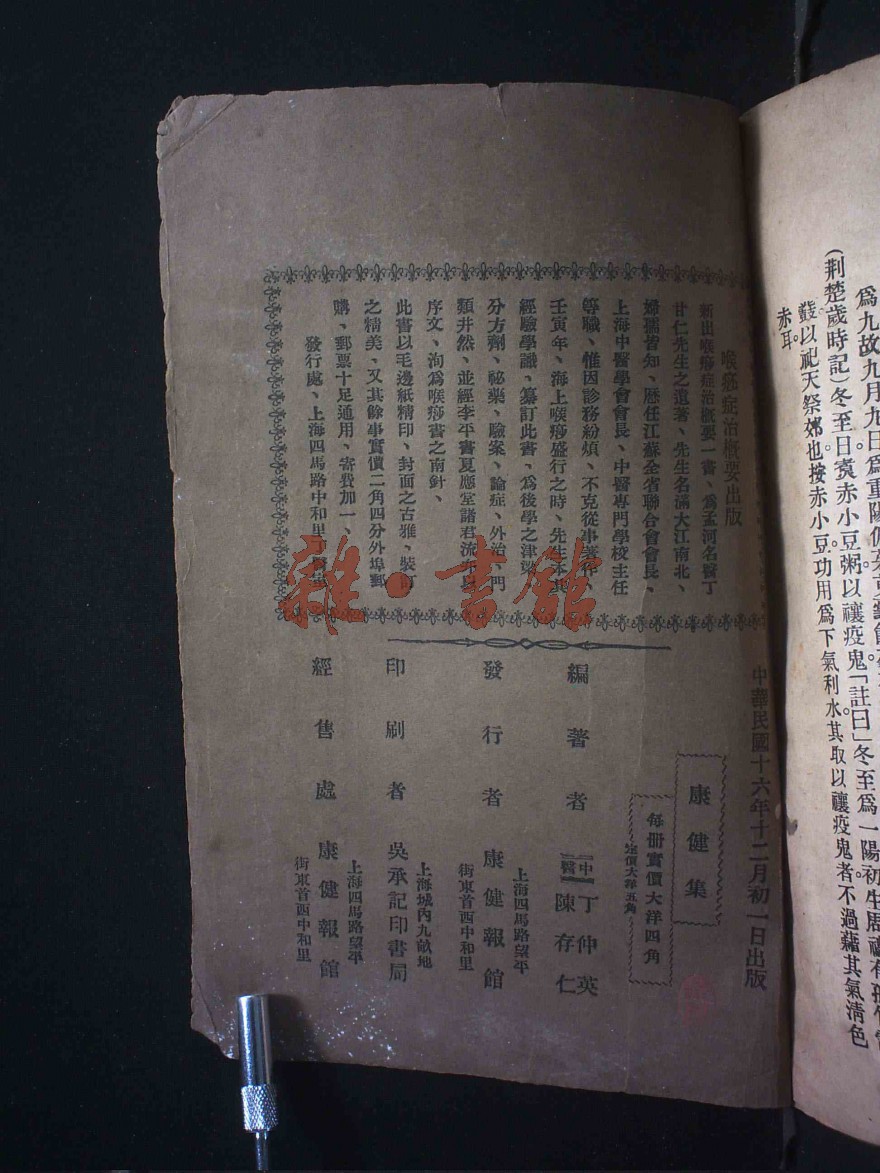 為九故九月九日為重陽
(荆楚歲時記)冬至日煑赤小豆粥以禳疫鬼「註曰」冬至為一陽初生周禮有
鼓以祀天祭郊也按赤小豆功用為下氣利水其取以禳疫鬼者不過藉其氣清色
赤耳。
喉痧症治概要出版
新出喉痧症治概要一書、為孟河名醫丁
甘仁先生之遺著、先生名滿大江南北、
婦孺皆知、歷任江蘇全省聯合會會長、
上海中醫學會會長、中醫專門學校主任
等職、惟因診務紛煩、不克從事著作、
壬寅年、海上喉痧盛行之時、先生本其
經驗學識、纂訂此書、為後學之津梁
分方劑、祕藥、驗案、論症、外治、門
類井然、並經李平書夏應堂諸君
序文、洵為喉痧書之南針、
此書以毛邊紙精印、封面之古雅、裝訂
之精美、又其餘事實價二角四分外埠郵
購、郵票十足通用、寄費加一、
發行處、上海四馬路中和里
中華民國十六年十二月初一日出版
康健集
每冊實價大洋四角
定價大洋五角
編著者 「中醫」 丁仲英 陳存仁
發行者 上海四馬路望平街東首西中和里 康健報館
印刷者 上海城內九畝地 吳承記印書局
經售處 上海四馬路望平街東首西中和里 康健報館
雜·書館